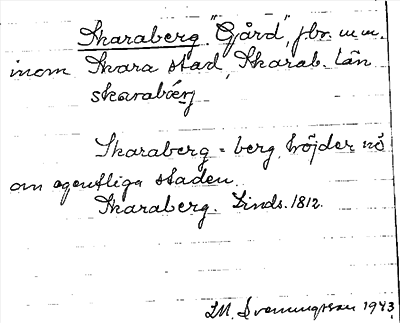 Skaraberg. "Gård", fbr. m.m.
inom Skara stad, Skarab. län
skarabærj
Skaraberg = berg, höjder nö
om egentliga staden.
Skaraberg. Linds. 1812.
I.M. Svenungsson 1943